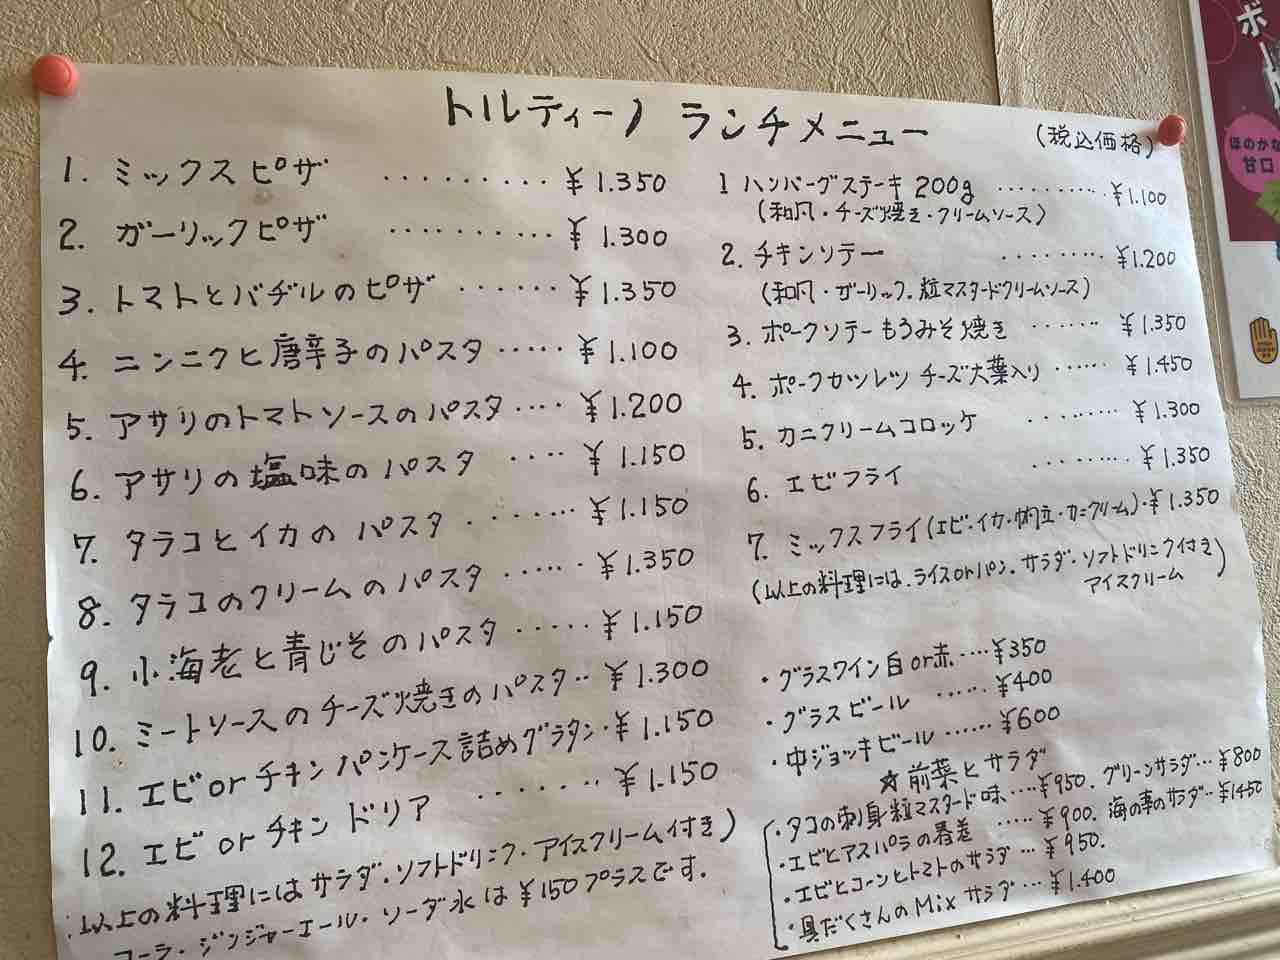 トルティーノ ランチメニュー
(税込価格)
1. ミックスピザ ·········· ¥1.350
2. ガーリックピザ ·········· ¥1.300
3. トマトとバヂルのピザ ······ ¥1.350
4. ニンニクと唐辛子のパスタ ····· ¥1.100
5. アサリのトマトソースのパスタ ···· ¥1.200
6. アサリの塩味のパスタ ···· ¥1.150
7. タラコとイカのパスタ ······· ¥1.150
8. タラコのクリームのパスタ ······ ¥1.350
9. 小海老と青じそのパスタ ······ ¥1.150
10. ミートソースのチーズ焼きのパスタ·· ¥1.300
11. エビorチキンパンケース詰めグラタン·¥1.150
12. エビorチキンドリア ······· ¥1.150
以上の料理にはサラダ.ソフトドリンク·アイスクリーム付き)
コーラ·ジンジャーエール·ソーダ水は¥150プラスです.
1 ハンバーグステーキ 200g ·········· ¥1.100
(和風·チーズ焼き·クリームソース)
2. チキンソテー ········ ¥1.200
(和風·ガーリック.粒マスタードクリームソース)
3. ポークソテーもろみそ焼き ······ ¥1.350
4. ポークカツレツ チーズ大葉入り ······ ¥1.450
5. カニクリームコロッケ ········ ¥1.300
6. エビフライ ········ ¥1.350
7. ミックスフライ(エビ·イカ·帆立·カニクリーム)·¥1.350
(以上の料理には.ライスorパン.サラダ·ソフトドリンク付き)
アイスクリーム
·グラスワイン白or赤····¥350
·グラスビール ······¥400
·中ジョッキビール······¥600
☆前菜とサラダ
·タコの刺身粒マスタード味····¥950. グリーンサラダ···¥800
·エビとアスパラの春巻 ·····¥900. 海の幸のサラダ··¥1450
·エビとコーンとトマトのサラダ···¥950.
·具だくさんのMixサラダ···¥1.400
ほのかな
甘口